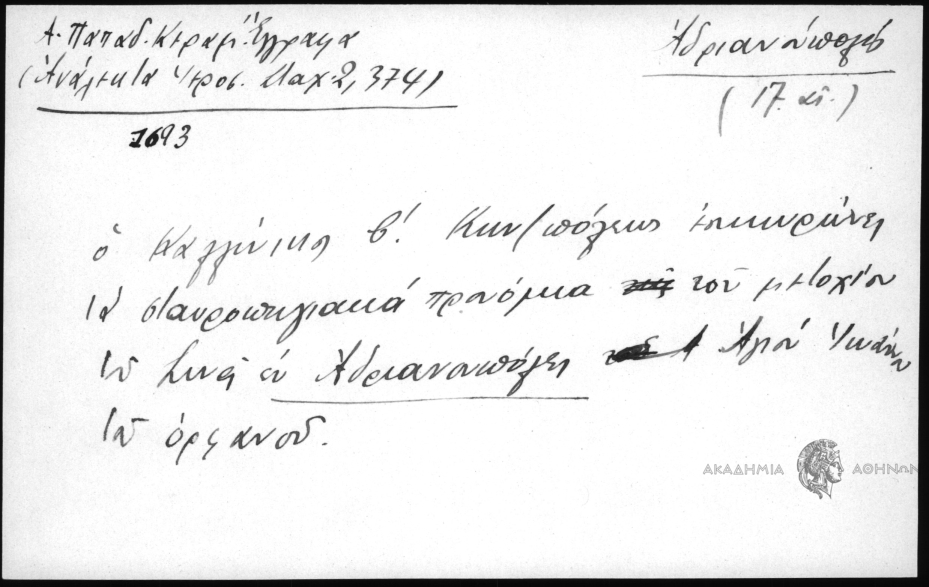 Α. Παπαδ. Κεραμ. Ἔγγραφα
(Ἀνάλεκτα Ἱεροσ. Σταχ. 2, 374)
1693
Ἀδριανούπολις
(17. αἰ.)
ὁ Καλλίνικος β΄. Κων/πόλεως ἐπικυρώνει
τὰ σταυροπηγιακά προνόμια τοῦ μετοχίου
τοῦ Σινᾶ ἐν Ἀδριανουπόλει Ἁγίου Ἰωάννου
τοῦ
ΑΚΑΔΗΜΙΑ ΑΘΗΝΩΝ